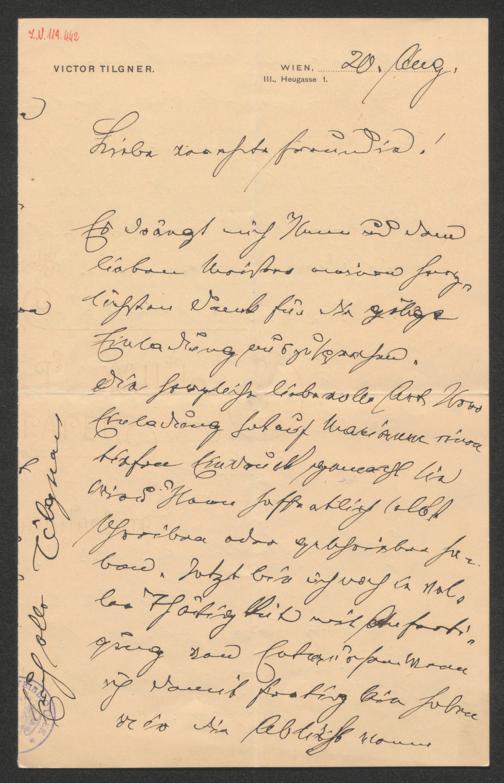 I.N. 119.442
VICTOR TILGNER.
WIEN, 20. Aug.
III., Heugasse 1.
Liebe verehrte Freundin!
Es drängt mich Ihnen und dem
lieben Meister meinen herz-
lichsten Dank für die gütige
Einladung auszusprechen.
Die herzliche liebevolle Art Ihrer
Einladung hat auf Marianne einen
tiefen Eindruck gemacht sie
wird Ihnen hoffentlich selbst
schreiben oder geschrieben ha-
ben. Jetzt bin ich noch in vol-
ler Thätigkeit mit Anferti-
gung von Entwürfen wenn
ich damit fertig bin haben
wir die Absicht
Tilgner